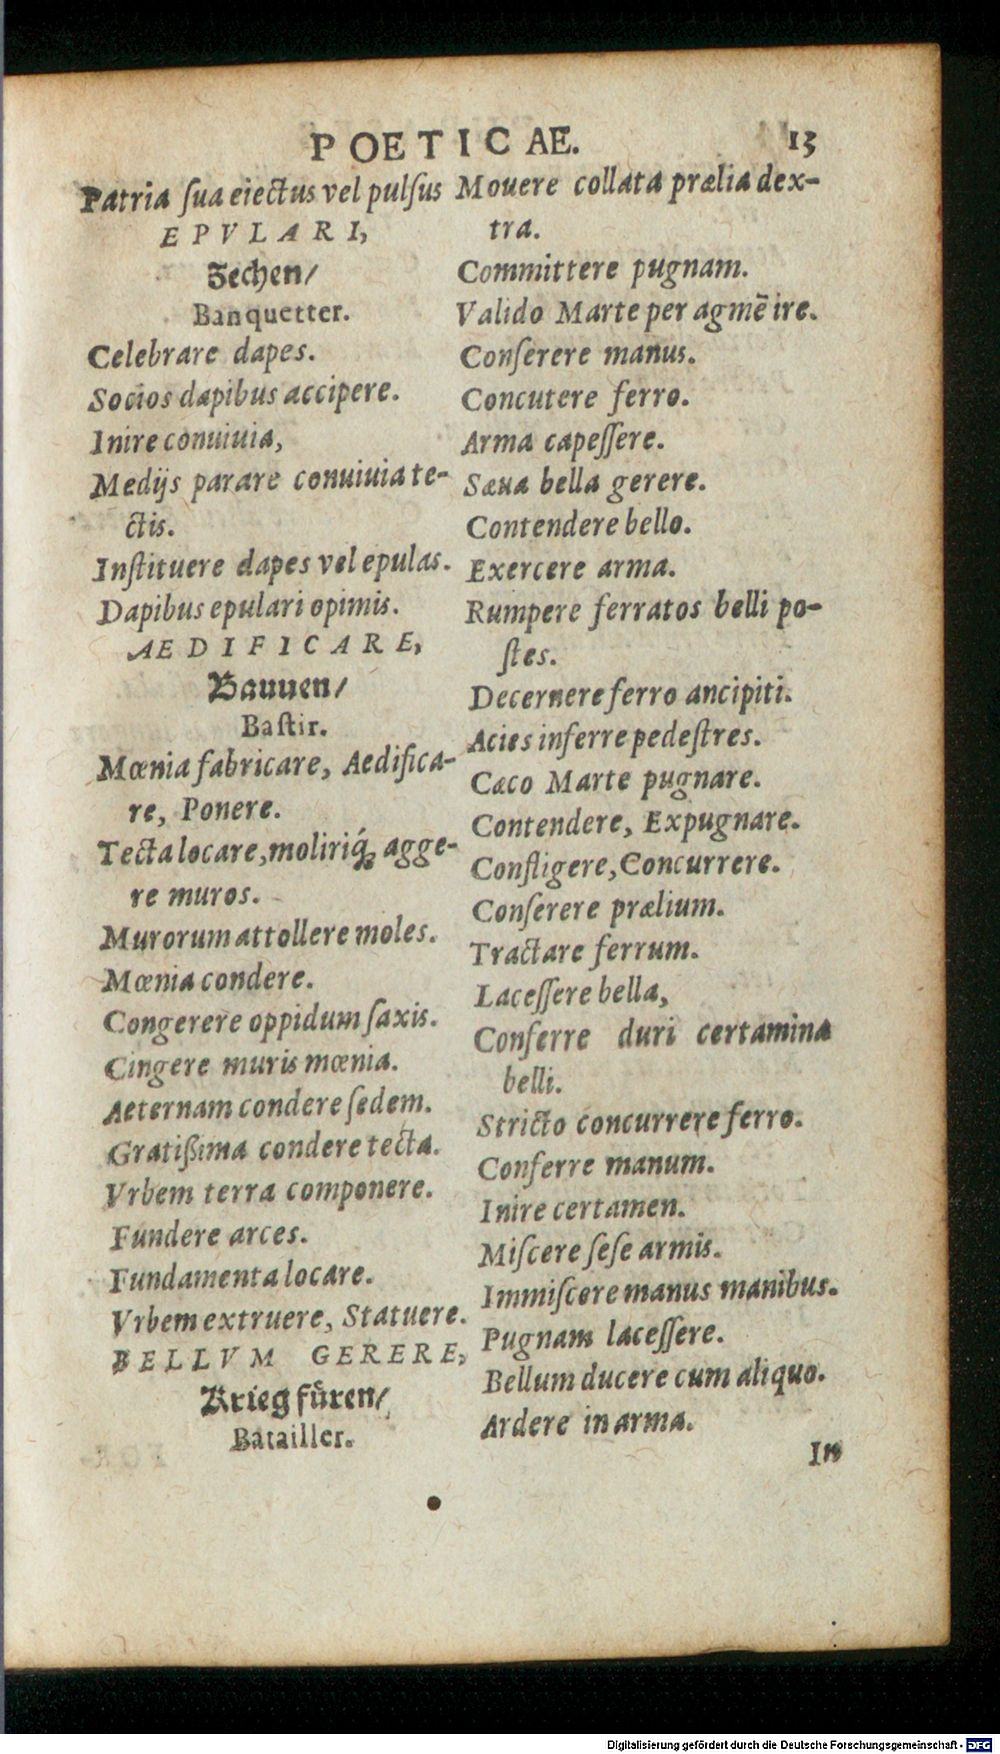 POETICAE. 13
Patria ſua eiectus vel pulſus
EPVLARI,
Zechen/
Banquetter.
Celebrare dapes.
Socios dapibus accipere.
Inire conuiuia,
Medijs parare conuiuia te-
ctis.
Inſtituere dapes vel epulas.
Dapibus epulari opimis.
AEDIFICARE,
Bauuen/
Baſtir.
Mœnia fabricare, Aedifica-
re, Ponere.
Tecta locare, moliriq́; agge-
re muros.
Murorum attollere moles.
Mœnia condere.
Congerere oppidum ſaxis.
Cingere muris mœnia.
Aeternam condere ſedem.
Gratißima condere tecta.
Vrbem terra componere.
Fundere arces.
Fundamenta locare.
Vrbem extruere, Statuere.
BELLVM GERERE,
Krieg fuͤren/
Batailler.
Mouere collata prælia dex-
tra.
Committere pugnam.
Valido Marte per agmē ire.
Conſerere manus.
Concutere ferro.
Arma capeſſere.
Sæua bella gerere.
Contendere bello.
Exercere arma.
Rumpere ferratos belli po-
ſtes.
Decernere ferro ancipiti.
Acies inferre pedeſtres.
Cæco Marte pugnare.
Contendere, Expugnare.
Confligere, Concurrere.
Conſerere prælium.
Tractare ferrum.
Laceſſere bella,
Conferre duri certamina
belli.
Stricto concurrere ferro.
Conferre manum.
Inire certamen.
Miſcere ſeſe armis.
Immiſcere manus manibus.
Pugnam laceſſere.
Bellum ducere cum aliquo.
Ardere in arma.
In
Digitalisierung gefördert durch die Deutsche Forschungsgemeinschaft - DFG